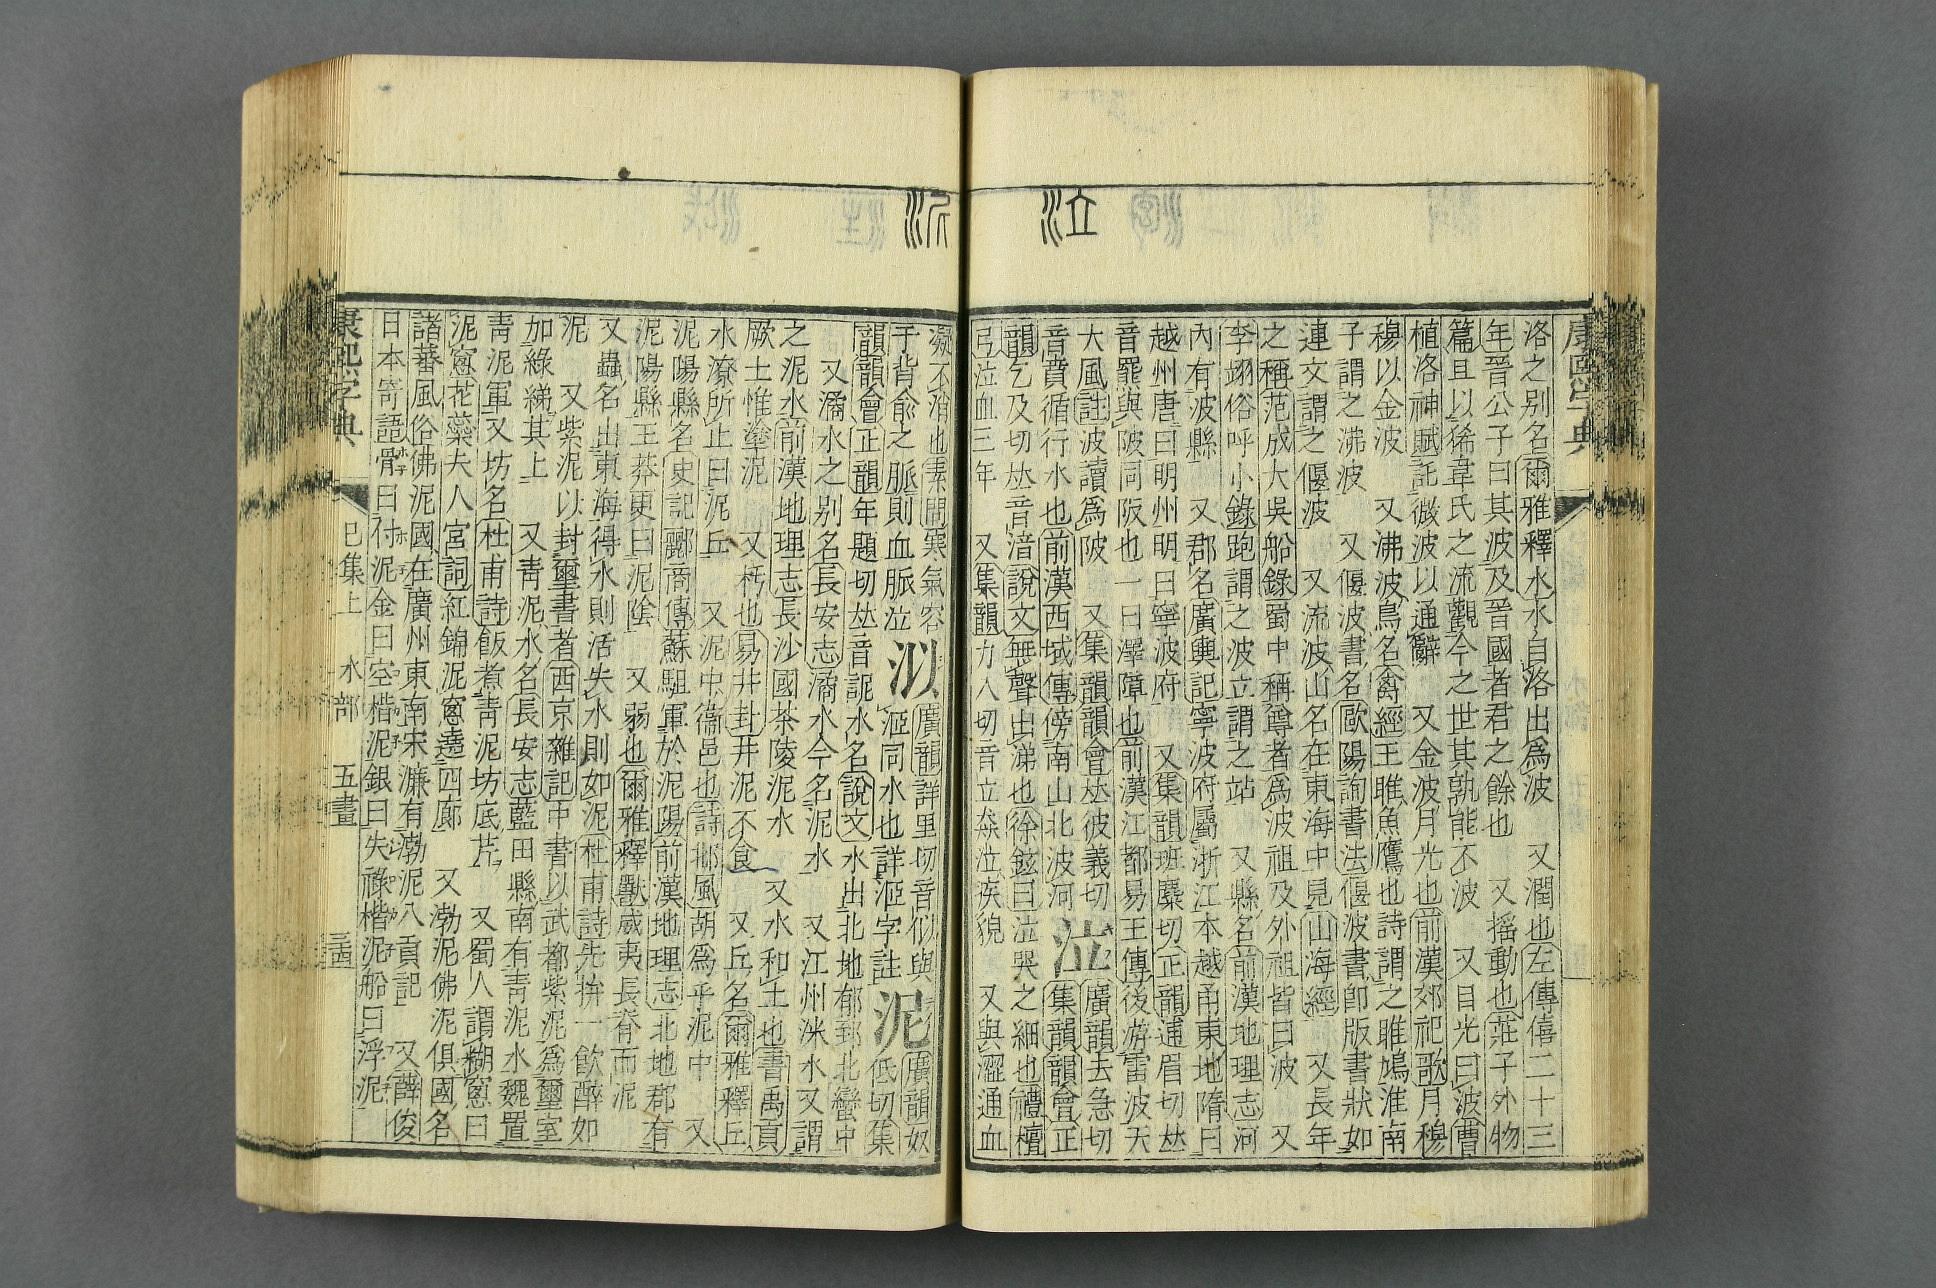 泣
康熙字典
洛之别名爾雅釋水水自洛出爲波　又潤也左傳僖二十三
年晉公子曰其波及晉國者君之餘也　又搖動也莊子外物
篇且以狶韋氏之流觀今之世其孰能不波　又目光曰波曹
植洛神賦託微波以通辭　又金波月光也前漢郊祀歌月穆
穆以金波　又沸波鳥名禽經王雎魚鷹也詩謂之雎鳩淮南
子謂之沸波　又偃波書名歐陽詢書法偃波書卽版書狀如
連文謂之偃波　又流波山名在東海中見山海經　又長年
之稱范成大吳船錄蜀中稱尊者爲波祖及外祖皆曰波　又
李翊俗呼小錄跑謂之波立謂之站　又縣名前漢地理志河
內有波縣　又郡名廣輿記寧波府屬浙江本越甬東地隋曰
越州唐曰明州明曰寧波府　又集韻班麋切正韻逋眉切𠀤
音羆與陂同阪也一曰澤障也前漢江都易王傳後游雷波天
大風註波讀爲陂　又集韻韻會𠀤彼義切
音賁循行水也前漢西域傳傍南山北波河
泣
廣韻去急切
集韻韻會正
韻乞及切𠀤音湆說文無聲出涕也徐鉉曰泣哭之細也禮檀
弓泣血三年　又集韻力入切音立猋泣疾貌　又與澀通血
泥
凝不消也素問寒氣客
于背俞之脈則血脈泣
泤
廣韻詳里切音似與
洍同水也詳洍字註
泥
廣韻奴
低切集
韻韻會正韻年題切𠀤音詑水名說文水出北地郁郅北蠻中
又潏水之别名長安志潏水今名泥水　又江州浀水又謂
之泥水前漢地理志長沙國茶陵泥水　又水和土也書禹貢
厥土惟塗泥　又杇也易井卦井泥不食　又丘名爾雅釋丘
水潦所止曰泥丘　又泥中衞邑也詩邶風胡爲乎泥中　又
泥陽縣名史記酈商傳蘇駔軍於泥陽前漢地理志北地郡有
泥陽縣王莽更曰泥陰　又弱也爾雅釋獸威夷長脊而泥
又蟲名出東海得水則活失水則如泥杜甫詩先拚一飲醉如
泥　又紫泥以封璽書者西京雜記中書以武都紫泥爲璽室
加綠綈其上　又靑泥水名長安志藍田縣南有靑泥水魏置
靑泥軍又坊名杜甫詩飯煮靑泥坊底芹　又蜀人謂糊窻曰
泥窻花蘂夫人宮詞紅錦泥窻遶四廊　又渤泥佛泥俱國名
諸蕃風俗佛泥國在廣州東南宋濂有渤泥入貢記　又薛俊
日本寄語骨曰付泥金曰空措泥銀曰失祿楷泥船曰浮泥
康熙字典　巳集上　水部　五畫